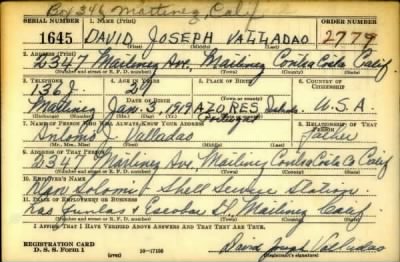 Box 346 Martinez, Calif
SERIAL NUMBER 1. NAME (Print) ORDER NUMBER
1645 DAVID JOSEPH VALLADAO 2779
(First) (Middle) (Last)
2. ADDRESS (Print)
2347 Martinez Ave, Martinez Contra Costa Calif.
(Number and street or R. F. D. number) (Town) (County) (State)
3. TELEPHONE 4. AGE IN YEARS 5. PLACE OF BIRTH 6. COUNTRY OF CITIZENSHIP
136 J. 21 AZORES Islands U.S.A.
Martinez Jan. 2, 1919 Portugal
(Exchange) (Number) (Mo.) (Day) (Yr.) (State or country)
7. NAME OF PERSON WHO WILL ALWAYS KNOW YOUR ADDRESS 8. RELATIONSHIP OF THAT PERSON
Antone J. Valladao Father
(Mr., Mrs., Miss) (First) (Middle) (Last)
9. ADDRESS OF THAT PERSON
2347 Martinez Ave, Martinez Contra Costa Co Calif
(Number and street or R. F. D. number) (Town) (County) (State)
10. EMPLOYER'S NAME
Shell Service Station.
11. PLACE OF EMPLOYMENT OR BUSINESS
Las Juntas & Escobar St. Martinez Calif.
(Number and street or R. F. D. number) (Town) (County) (State)
I AFFIRM THAT I HAVE VERIFIED ABOVE ANSWERS AND THAT THEY ARE TRUE.
REGISTRATION CARD
D. S. S. Form 1 16—17105 David Joseph Valladao
(Registrant's signature)